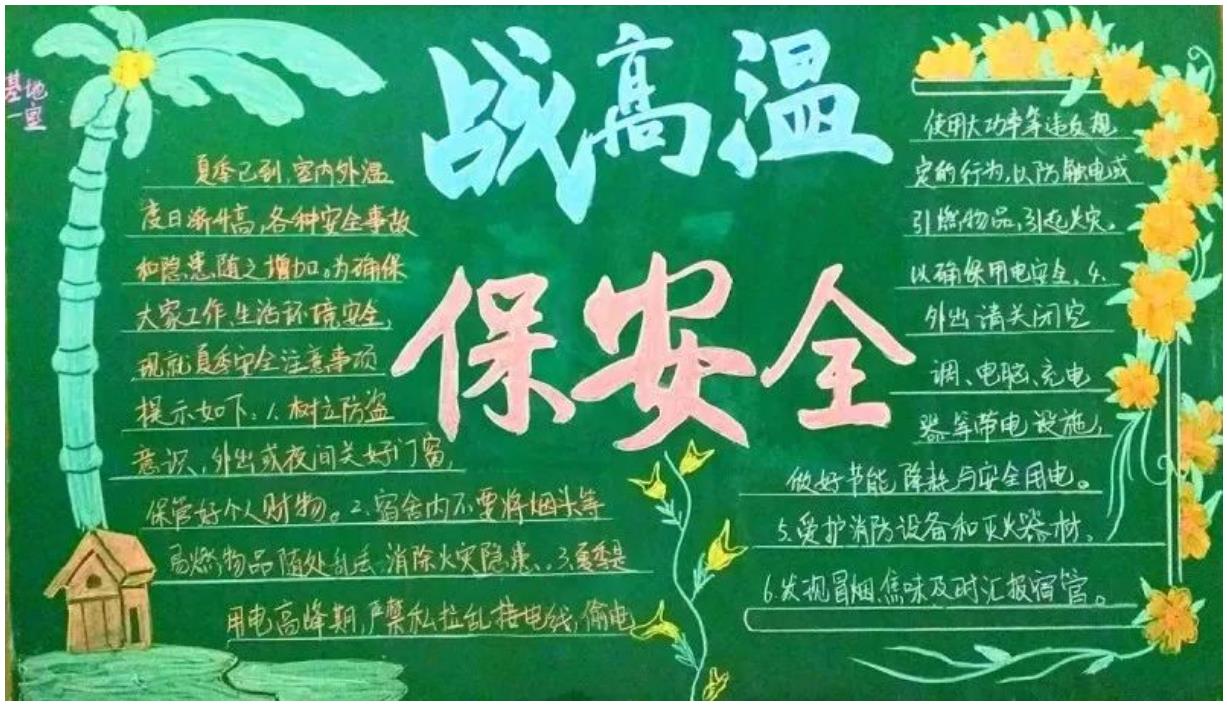 基地
一室
战高温
保安全
夏季已到,室内外温
度日渐升高,各种安全事故
和隐患随之增加。为确保
大家工作、生活环境安全,
现就夏季安全注意事项
提示如下:1.树立防盗
意识,外出或夜间关好门窗,
保管好个人财物。2.宿舍内不要将烟头等
易燃物品随处乱丢,消除火灾隐患、。3.夏季是
用电高峰期,严禁私拉乱接电线,偷电
使用大功率等违反规
定的行为,以防触电或
引燃物品,引起火灾。
以确保用电安全。4.
外出请关闭空
调、电脑、充电
器等带电设施,
做好节能降耗与安全用电。
5.爱护消防设备和灭火器材。
6.发现冒烟、焦味及时汇报宿管。